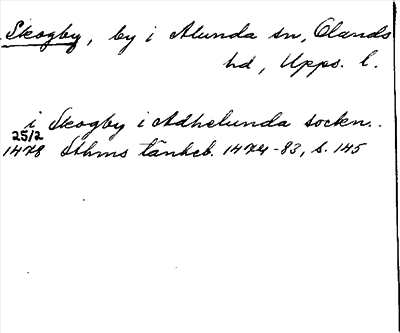 Skogby, by i Alunda sn, Olands
hd, Upps. l.
i Skogby i Adhelunda sockn..
25/2
1478 Sthms tänkeb. 1474-83, s. 145